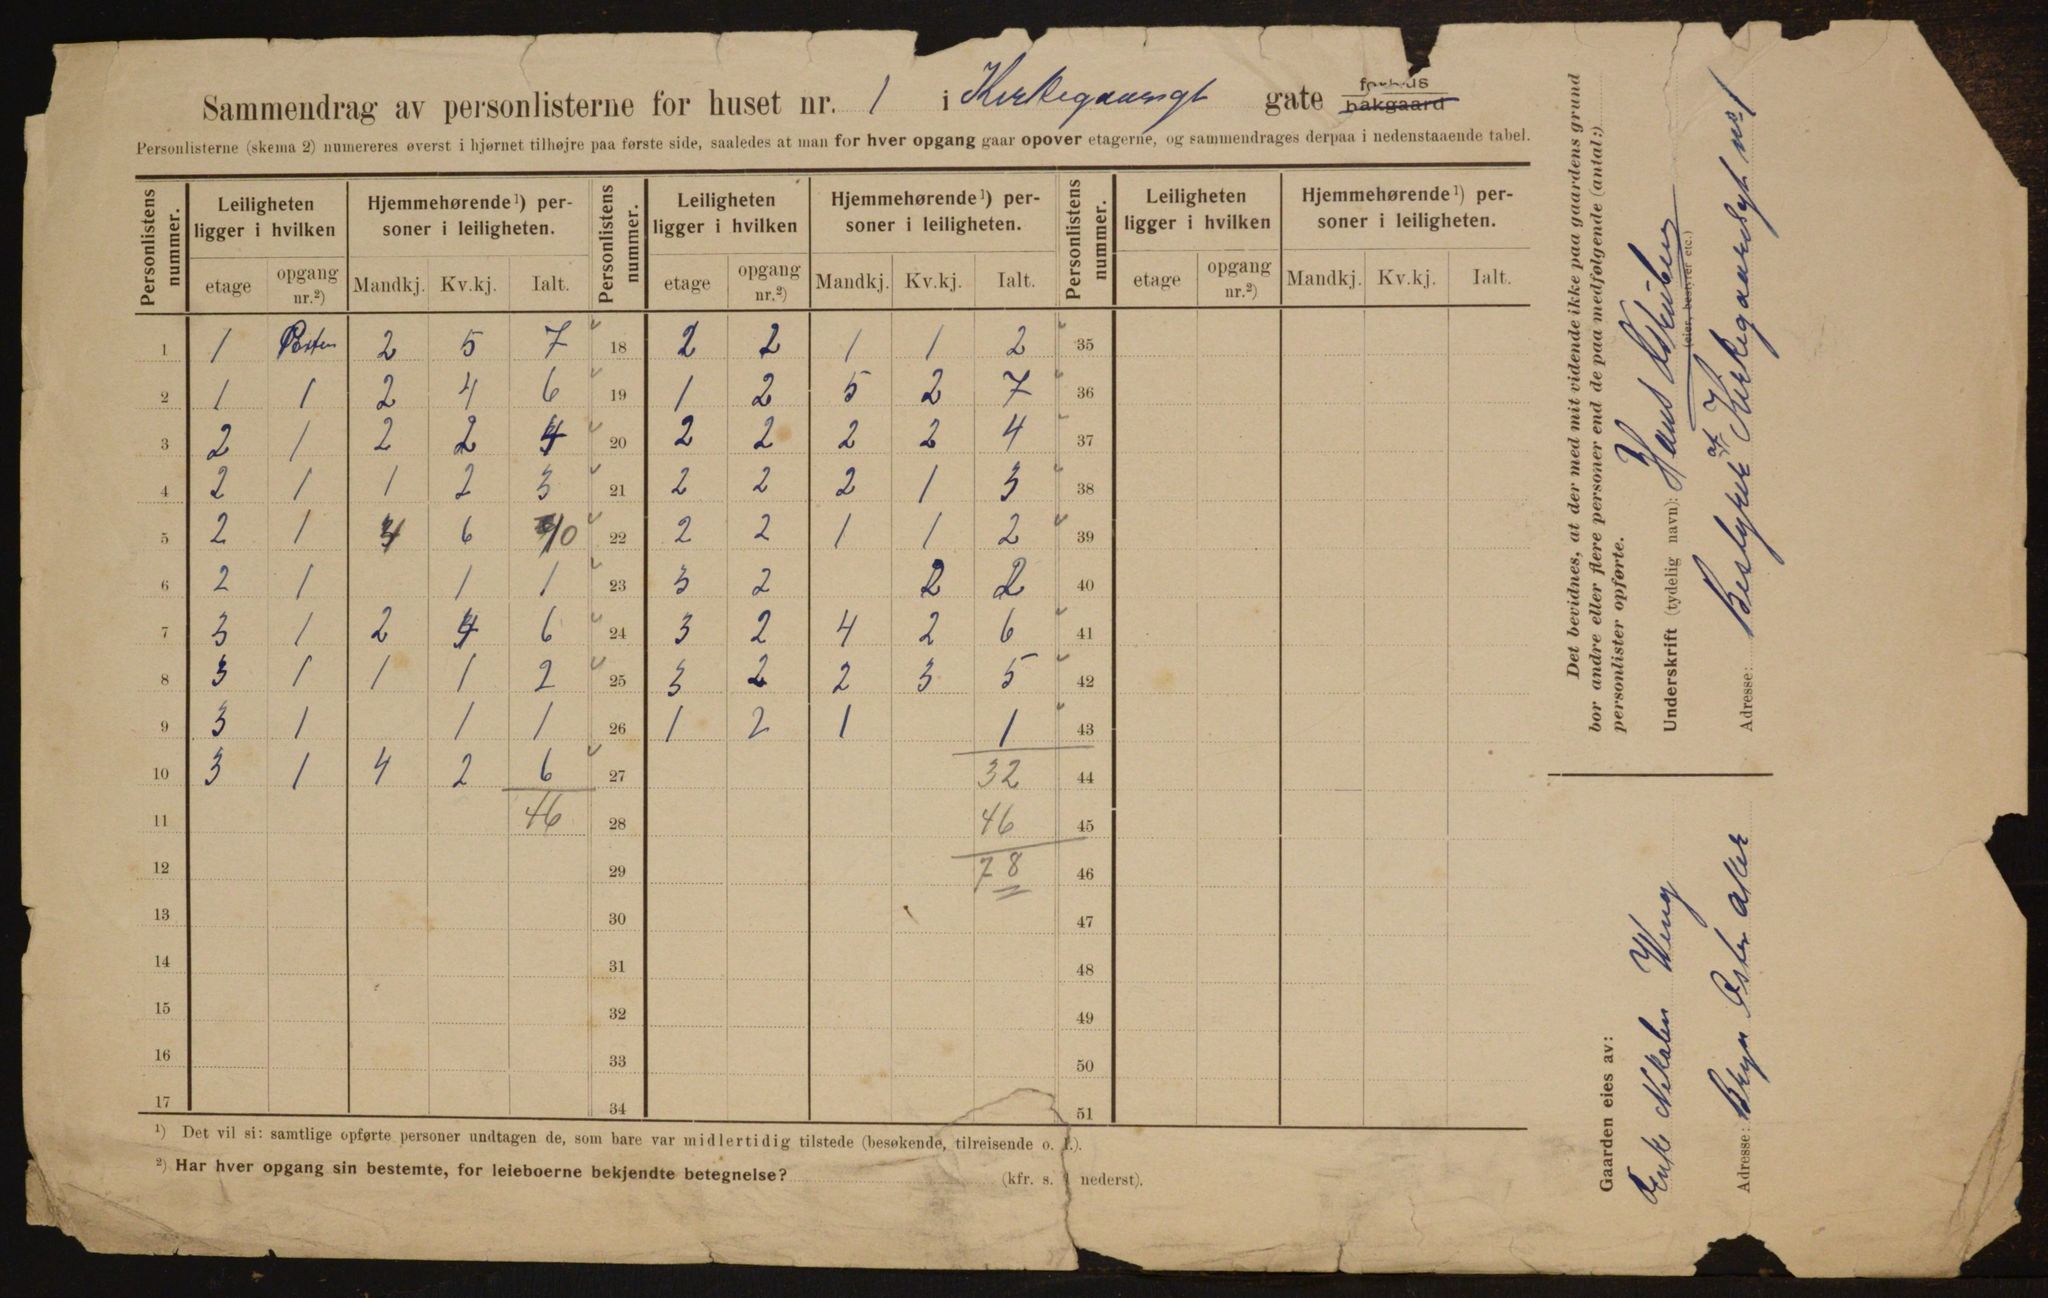 Sammendrag av personlisterne for huset nr. 1 i Kirkegaardsgt gate forhus bakgaard
Personlisterne (skema 2) numereres øverst i hjørnet tilhøjre paa første side, saaledes at man for hver opgang gaar opover etagerne, og sammendrages derpaa i nedenstaaende tabel.
Personlistens nummer. Leiligheten ligger i hvilken Hjemmehørende¹) personer i leiligheten. Personlistens nummer. Leiligheten ligger i hvilken Hjemmehørende¹) personer i leiligheten. Personlistens nummer. Leiligheten ligger i hvilken Hjemmehørende¹) personer i leiligheten.
etage opgang nr.²) Mandkj. Kv.kj. Ialt. etage opgang nr.²) Mandkj. Kv.kj. Ialt. etage opgang nr.²) Mandkj. Kv.kj. Ialt.
1 1 2 5 7 18 2 2 1 1 2 35
2 1 1 2 4 6 19 1 2 5 2 7 36
3 2 1 2 2 4 20 2 2 2 2 4 37
4 2 1 1 2 3 21 2 2 2 1 3 38
5 2 1 4 6 10 22 2 2 1 1 2 39
6 2 1 1 1 23 3 2 2 2 40
7 3 1 2 4 6 24 3 2 4 2 6 41
8 3 1 1 1 2 25 3 2 2 3 5 42
9 3 1 1 1 26 1 2 1 1 43
10 3 1 4 2 6 27 32 44
11 46 28 46 45
12 29 78 46
13 30 47
14 31 48
15 32 49
16 33 50
17 34 51
¹) Det vil si: samtlige opførte personer undtagen de, som bare var midlertidig tilstede (besøkende, tilreisende o. l.).
²) Har hver opgang sin bestemte, for leieboerne bekjendte betegnelse? (kfr. s. 4 nederst).
Det bevidnes, at der med mit vidende ikke paa gaardens grund
bor andre eller flere personer end de paa medfølgende (antal:)
personlister opførte.
Underskrift (tydelig navn): Hans
(eier, bestyrer etc.)
Adresse: Bestyrer af Kirkegaardsgt no 1
Gaarden eies av:
Enke Weng
Adresse: Bryn Østre Aker